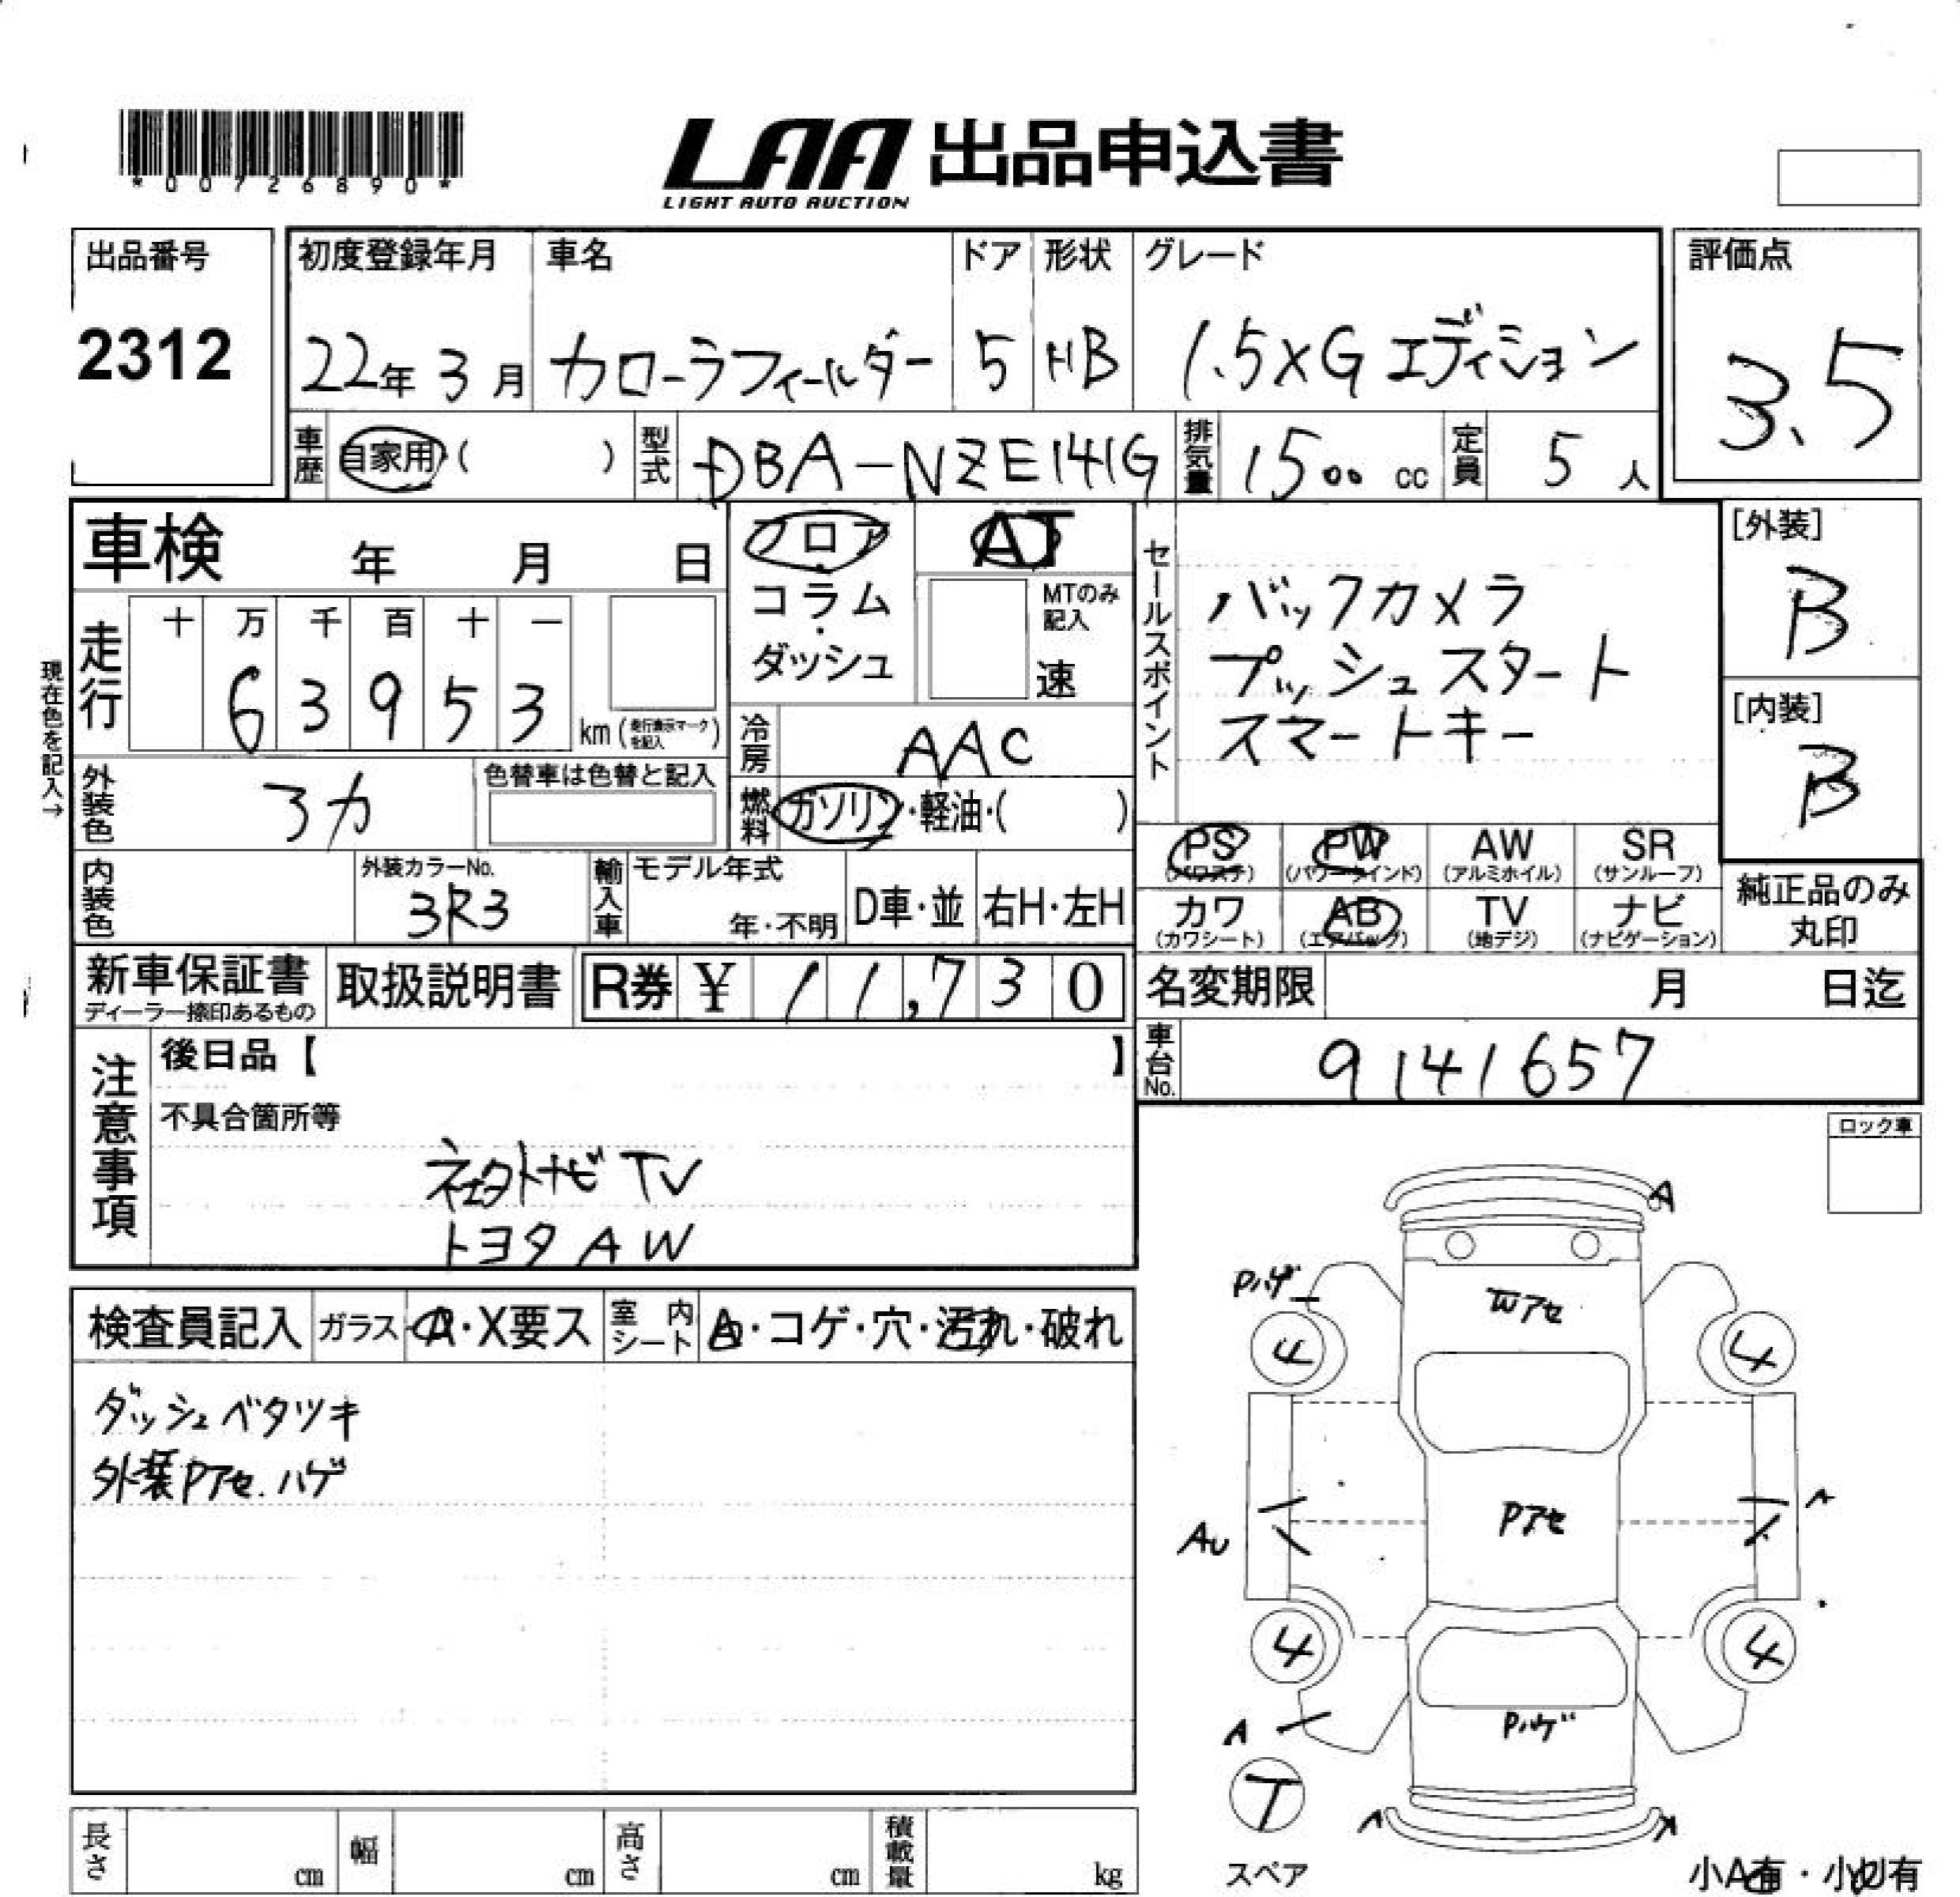 *00726890*
LAA 出品申込書
LIGHT AUTO AUCTION
出品番号
2312
初度登録年月
22年 3月
車名
カローラフィールダー
ドア
5
形状
HB
グレード
1.5XGエディション
評価点
3.5
車歴 自家用・( )
型式 DBA-NZE141G
排気量 1500 cc
定員 5 人
車検 年 月 日
フロア・コラム・ダッシュ
AT
MTのみ記入
速
セールスポイント
バックカメラ
プッシュスタート
スマートキー
[外装]
B
[内装]
B
現在色を記入→
走行
十 万 千 百 十 一
6 3 9 5 3
km (走行表示マークを記入)
冷房 AAC
外装色
色替車は色替と記入
燃料 ガソリン・軽油・( )
PS (パワステ)
PW (パワーウインド)
AW (アルミホイル)
SR (サンルーフ)
カワ (カワシート)
AB (エアバック)
TV (地デジ)
ナビ (ナビゲーション)
純正品のみ
丸印
内装色
外装カラーNo.
3R3
輸入車
モデル年式
年・不明
D車・並
右H・左H
新車保証書
ディーラー捺印あるもの
取扱説明書
R券 ¥ 11,730
名変期限 月 日迄
車台No. 9141657
注意事項
後日品【 】
不具合箇所等
ナビTV
トヨタAW
ロック車
検査員記入
ガラス A・X要ス
室内シート A・コゲ・穴・汚れ・破れ
ダッシュベタツキ
外装Pアセ.ハゲ
A
Pハゲ
Wアセ
4
4
Pアセ
A
AU
4
4
A
Pハゲ
T
スペア
A
A
小A有・小U有
長さ cm
幅 cm
高さ cm
積載量 kg